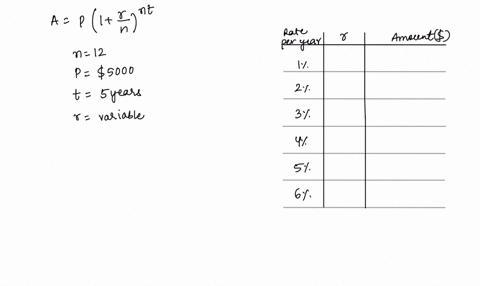 A = P (1 + r/n)^nt
n = 12
P = $5000
t = 5 years
r = variable
Rate per year r Amount($)
1%
2%
3%
4%
5%
6%